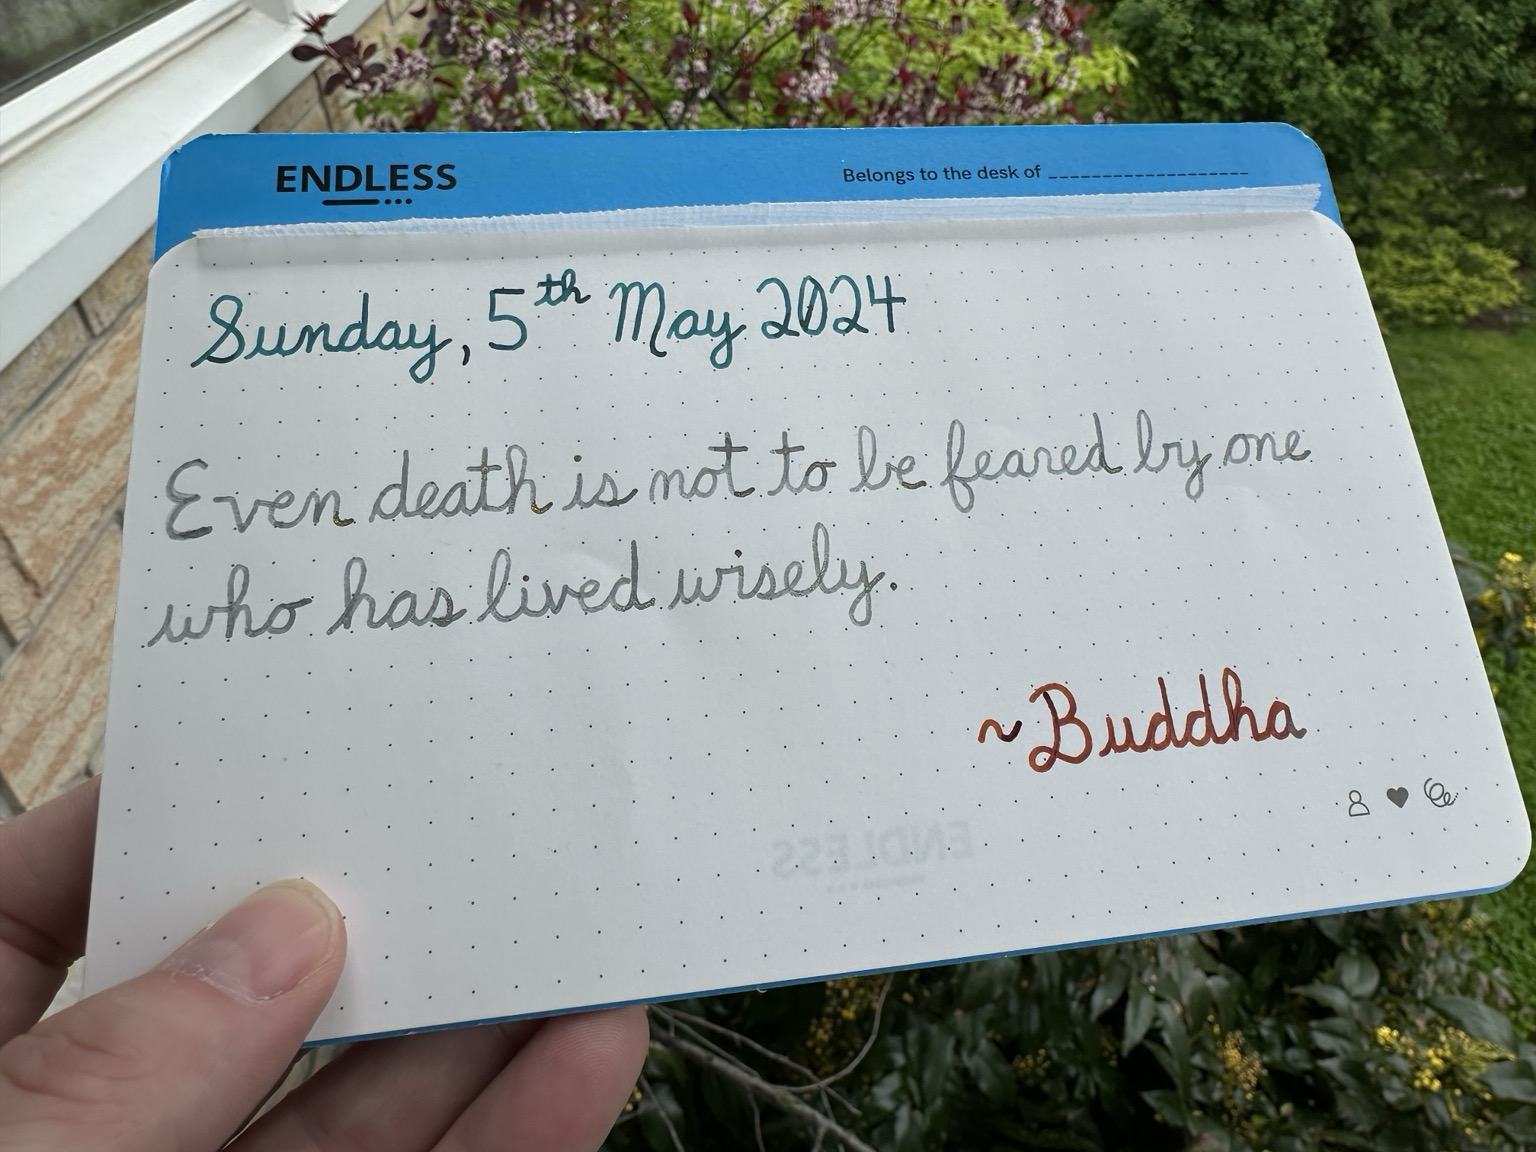 ENDLESS
Belongs to the desk of
Sunday, 5th May 2024
Even death is not to be feared by one
who has lived wisely.
~Buddha
ENDLESS